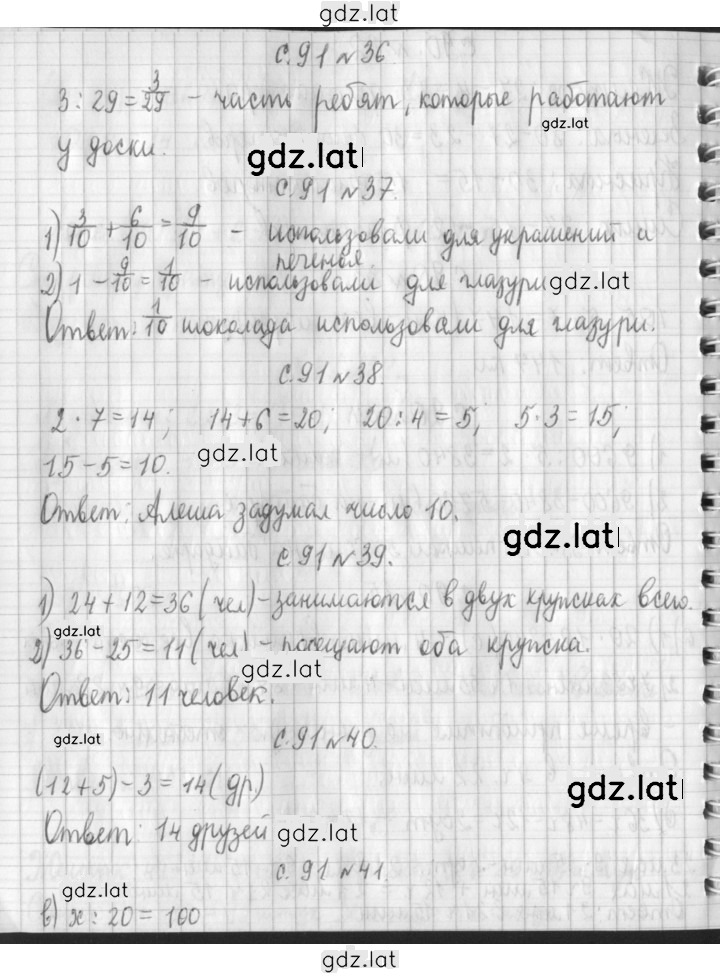 gdz.lat
с.91 №36
3 : 29 = 3/29 - часть ребят, которые работают
gdz.lat
у доски.
gdz.lat
с.91 №37.
1) 3/10 + 6/10 = 9/10 - использовали для украшений и
печенья.
2) 1 - 9/10 = 1/10 - использовали для глазури
gdz.lat
Ответ: 1/10 шоколада использовали для глазури.
с.91 №38.
2 · 7 = 14; 14 + 6 = 20; 20 : 4 = 5; 5 · 3 = 15;
gdz.lat
15 - 5 = 10.
Ответ: Алеша задумал число 10.
gdz.lat
с.91 №39.
1) 24 + 12 = 36 (чел) - занимаются в двух кружках всего.
gdz.lat
2) 36 - 25 = 11 (чел) - посещают оба кружка.
gdz.lat
Ответ: 11 человек.
с.91 №40.
gdz.lat
(12 + 5) - 3 = 14 (др)
gdz.lat
Ответ: 14 друзей
gdz.lat
с.91 №41.
gdz.lat
в) x : 20 = 100
gdz.lat